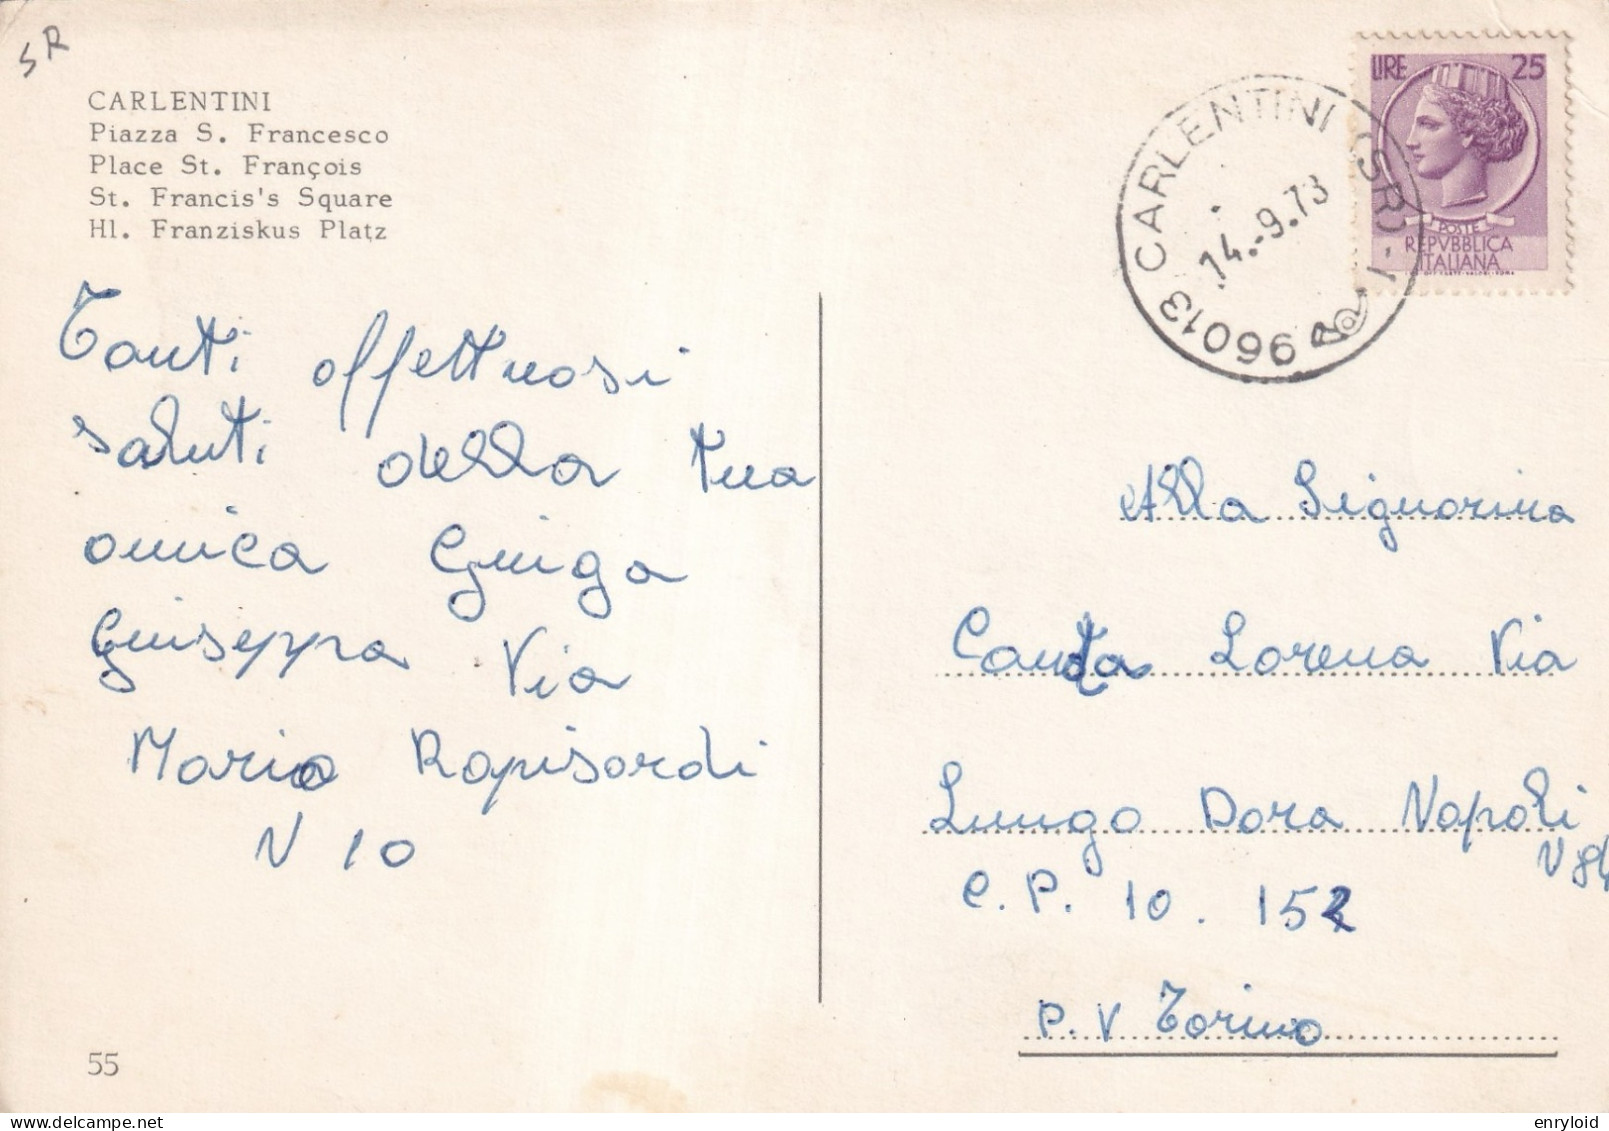 SR
CARLENTINI
Piazza S. Francesco
Place St. François
St. Francis's Square
Hl. Franziskus Platz
Tanti affettuosi
saluti della tua
amica Giuga
Giuseppa Via
Mario Rapisardi
N 10
55
LIRE 25
POSTE
REPVBBLICA
ITALIANA
96013 CARLENTINI (SR)
14.-9.73
Alla Signorina
Lorena Via
Lungo Dora Napoli
N 84
C. P. 10. 152
P. V Torino
enryloid
delcampe.net